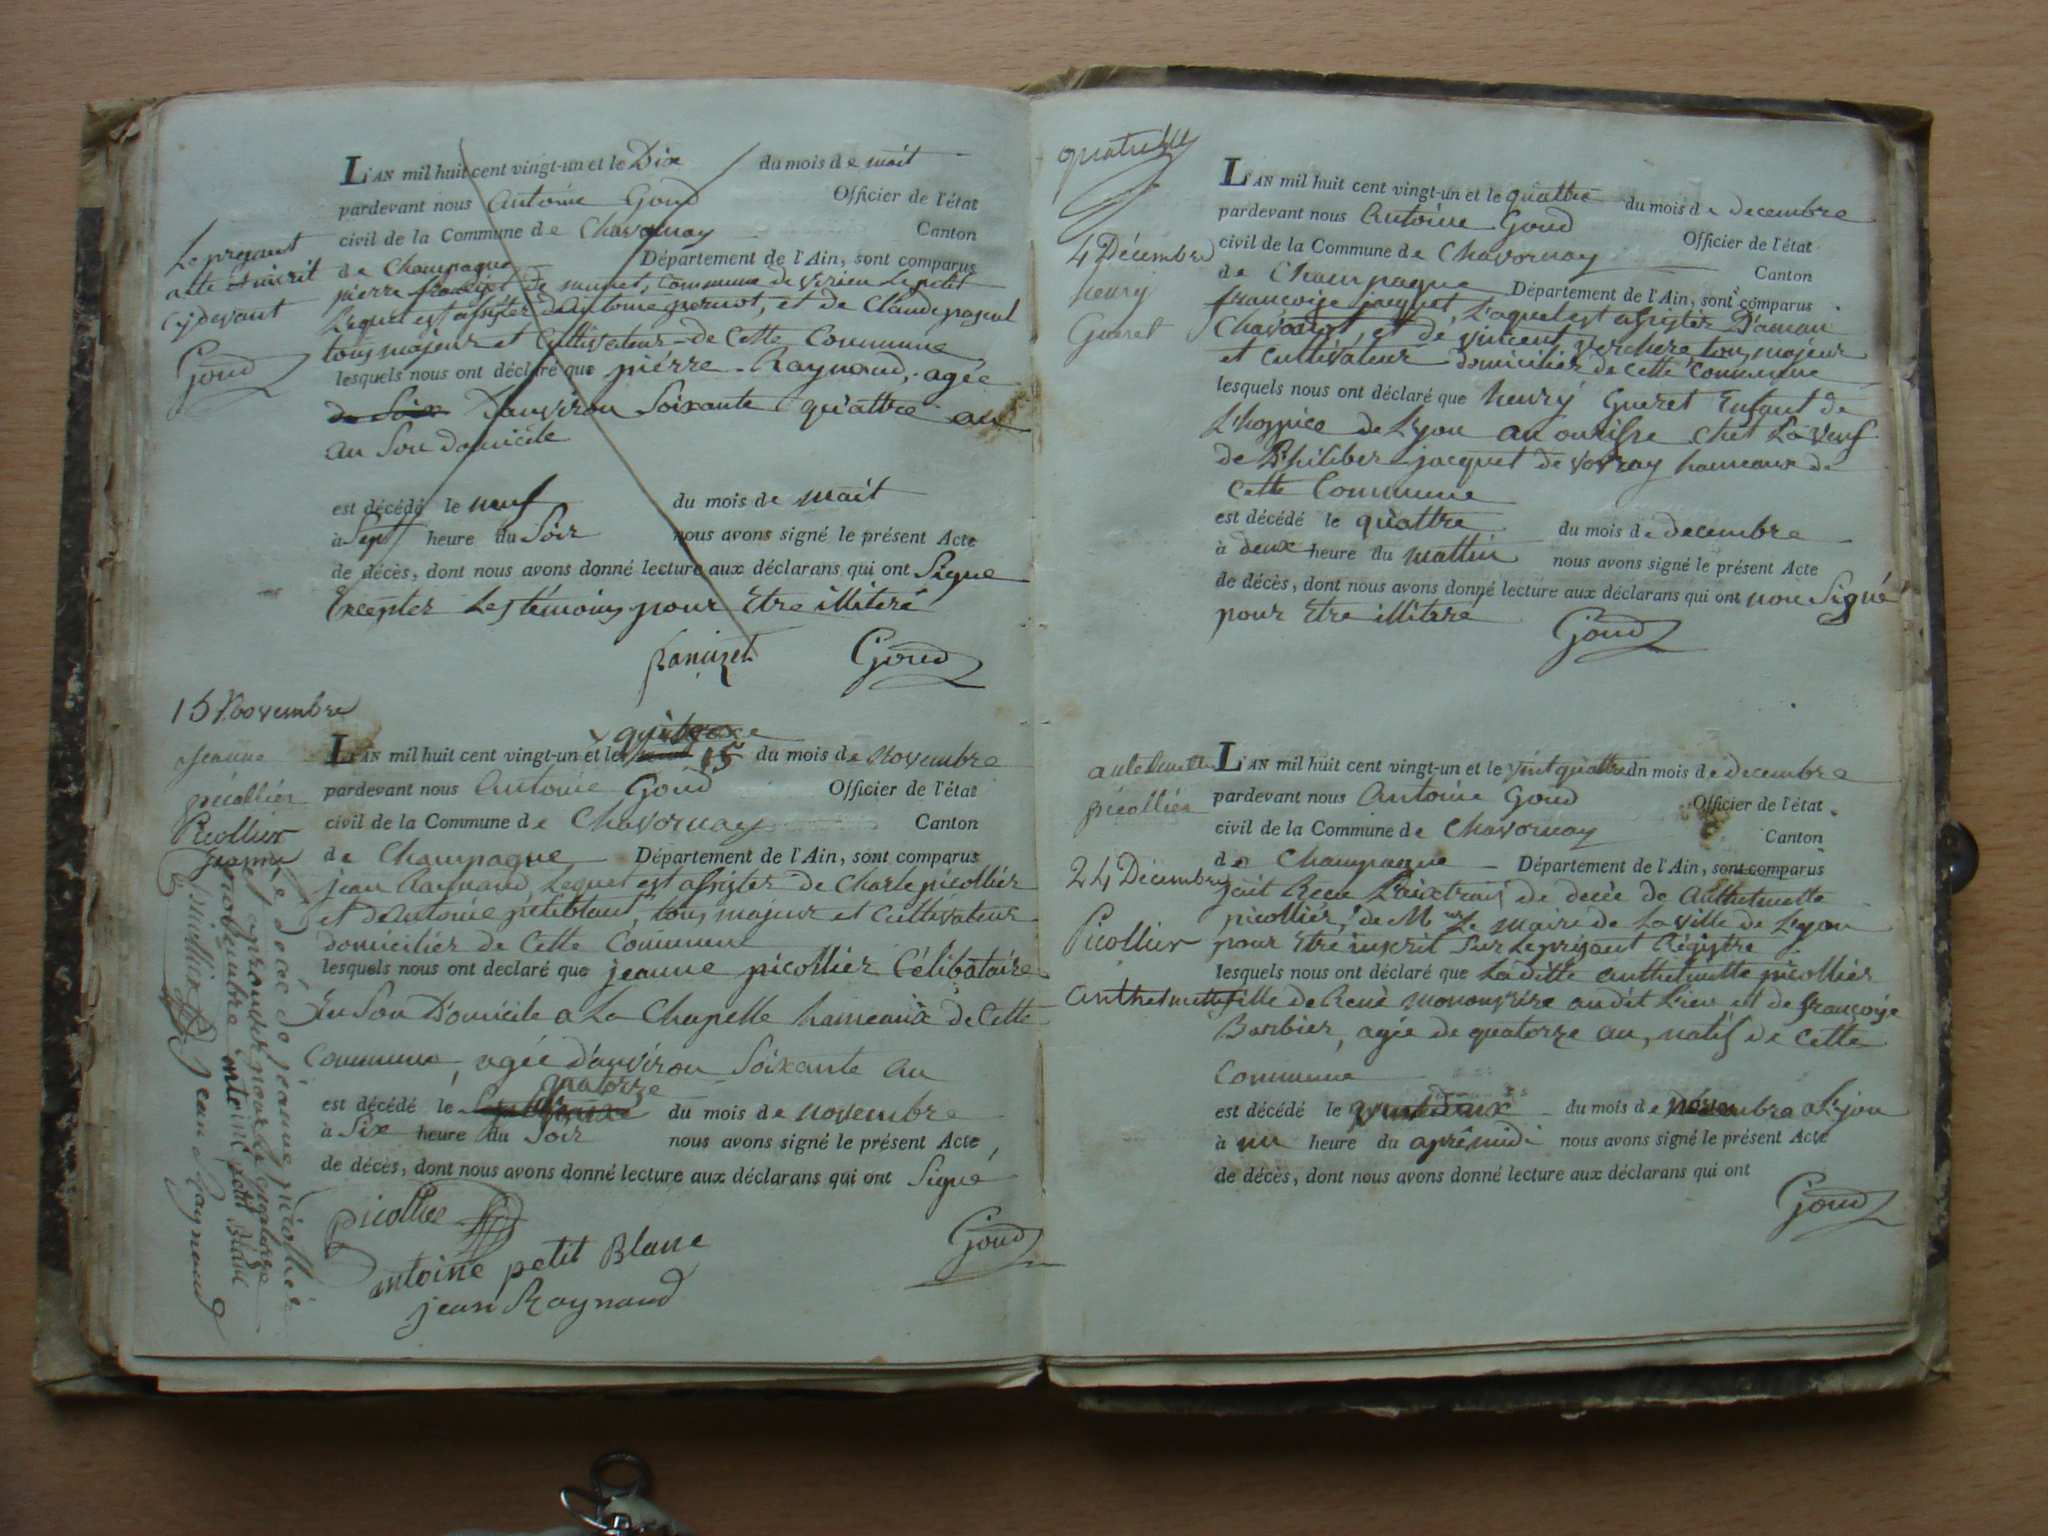 Le présent
acte est inscrit
cy devant
Goud
L'AN mil huit cent vingt-un et le Dix du mois de mait
pardevant nous Antoine Goud Officier de l'état
civil de la Commune de Chavornay Canton
de Champagne Département de l'Ain, sont comparus
pierre de Commune de virieu Le petit
Lequel est assister d'antoine et de Claude
tous majeur et Cultivateur de Cette Commune
lesquels nous ont déclaré que pierre Raynaud, agée
de Soix D'anviron Soixante quattre an
au Son domicile
est décédé le neuf du mois de mait
à Sept heure du Soir nous avons signé le présent Acte
de décès, dont nous avons donné lecture aux déclarans qui ont Signe
Excepter Les témoins pour Etre illiteré
Goud
15 Novembre
Jeanne
picollier
Picollier
jeanne
L'AN mil huit cent vingt-un et le quinze 15 du mois de Novembre
pardevant nous Antoine Goud Officier de l'état
civil de la Commune de Chavornay Canton
de Champagne Département de l'Ain, sont comparus
jean Raynaud, Lequel est assister de Charle picollier
et d'Antoine petitblanc, tous majeur et Cultivateur
domicilier de Cette Commune
lesquels nous ont declaré que jeanne picollier Célibataire
En Son Domicile a La Chapelle hameaux de Cette
Commune, agée d'anviron Soixante an
quatorze
est décédé le du mois de novembre
à Six heure du Soir nous avons signé le présent Acte
de décès, dont nous avons donné lecture aux déclarans qui ont Signé
picollier
antoine petit Blanc
jean Raynaud
Goud
de décéc de jeanne picollié
et aprouder pour le quatorze
novembre antoine petit Blanc
picollier jean Raynaud
4 Décembre
henry
Gueret
L'AN mil huit cent vingt-un et le quattre du mois de decembre
pardevant nous Antoine Goud Officier de l'état
civil de la Commune de Chavornay Canton
de Champagne Département de l'Ain, sont comparus
françoise jacquet, Laquel est assister D'aman
et de vincent verchere, tous majeur
et Cultivateur domicilier de cette Commune
lesquels nous ont déclaré que henry Gueret Enfant de
L'hospice de Lyon an ourisse chet La veuf
de Philiber jacquet de vovray hameaux de
Cette Commune
est décédé le quattre du mois de decembre
à deux heure du mattin nous avons signé le présent Acte
de décès, dont nous avons donné lecture aux déclarans qui ont non Signé
pour Etre illiteré
Goud
picollier
24 Décembre
Picollier
Anthelmette
L'AN mil huit cent vingt-un et le vint quattre du mois de decembre
pardevant nous Antoine Goud Officier de l'état
civil de la Commune de Chavornay Canton
de Champagne Département de l'Ain, sont comparus
jait Recu L'aixtrait de decée de Anthelmette
picollier, de Mr Le maire de La ville de Lyon
pour Etre inscrit Sur Le present Régistre
lesquels nous ont déclaré que La ditte anthelmette picollier
fille de René audit Lieu et de françoise
Barbier, agée de quatorze an, natif de Cette
Commune
est décédé le vint Deux du mois de novembre a Lyon
à un heure du aprêmidi nous avons signé le présent Acte
de décès, dont nous avons donné lecture aux déclarans qui ont
Goud